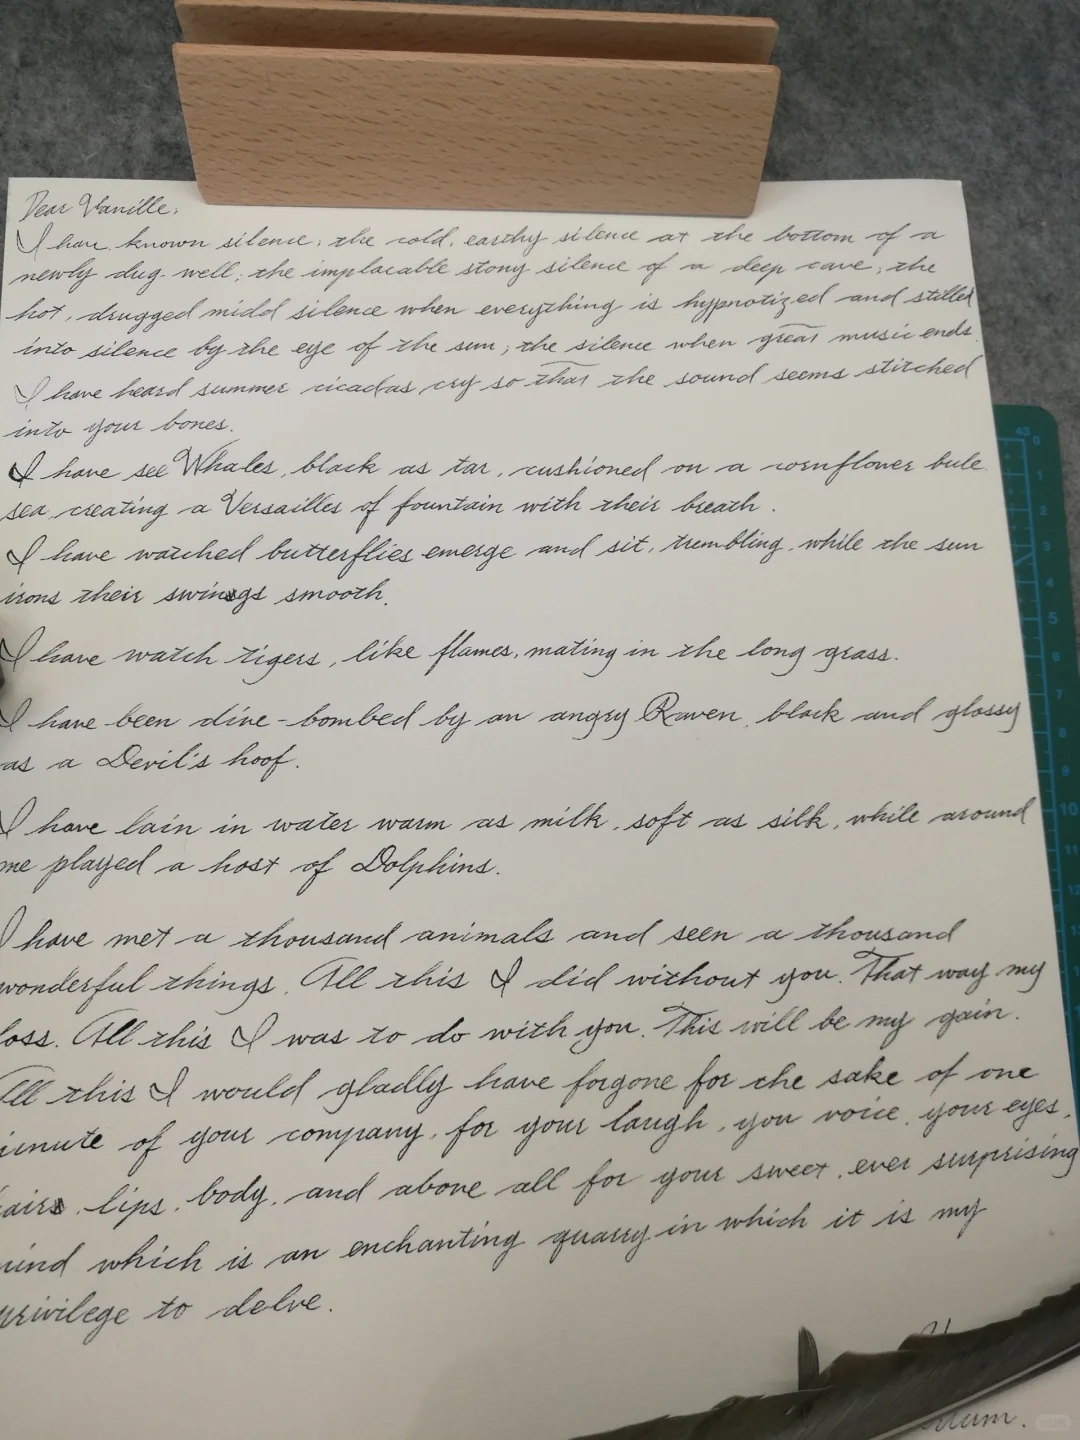 Dear Vanille,
I have known silence: the cold, earthy silence at the bottom of a
newly dug well; the implacable stony silence of a deep cave; the
hot, drugged midd silence when everything is hypnotized and stilled
into silence by the eye of the sun; the silence when great music ends.
I have heard summer cicadas cry so that the sound seems stitched
into your bones.
I have see Whales, black as tar, cushioned on a cornflower bule
sea, creating a Versailles of fountain with their breath.
I have watched butterflies emerge and sit, trembling, while the sun
irons their swings smooth.
I have watch tigers, like flames, mating in the long grass.
I have been dive-bombed by an angry Raven, black and glossy
as a Devil's hoof.
I have lain in water warm as milk, soft as silk, while around
me played a host of Dolphins.
I have met a thousand animals and seen a thousand
wonderful things. All this I did without you. That way my
loss. All this I was to do with you. This will be my gain.
All this I would gladly have forgone for the sake of one
inute of your company, for your laugh, you voice, your eyes,
airs, lips, body, and above all for your sweet, ever surprising
ind which is an enchanting quarry in which it is my
privilege to delve.